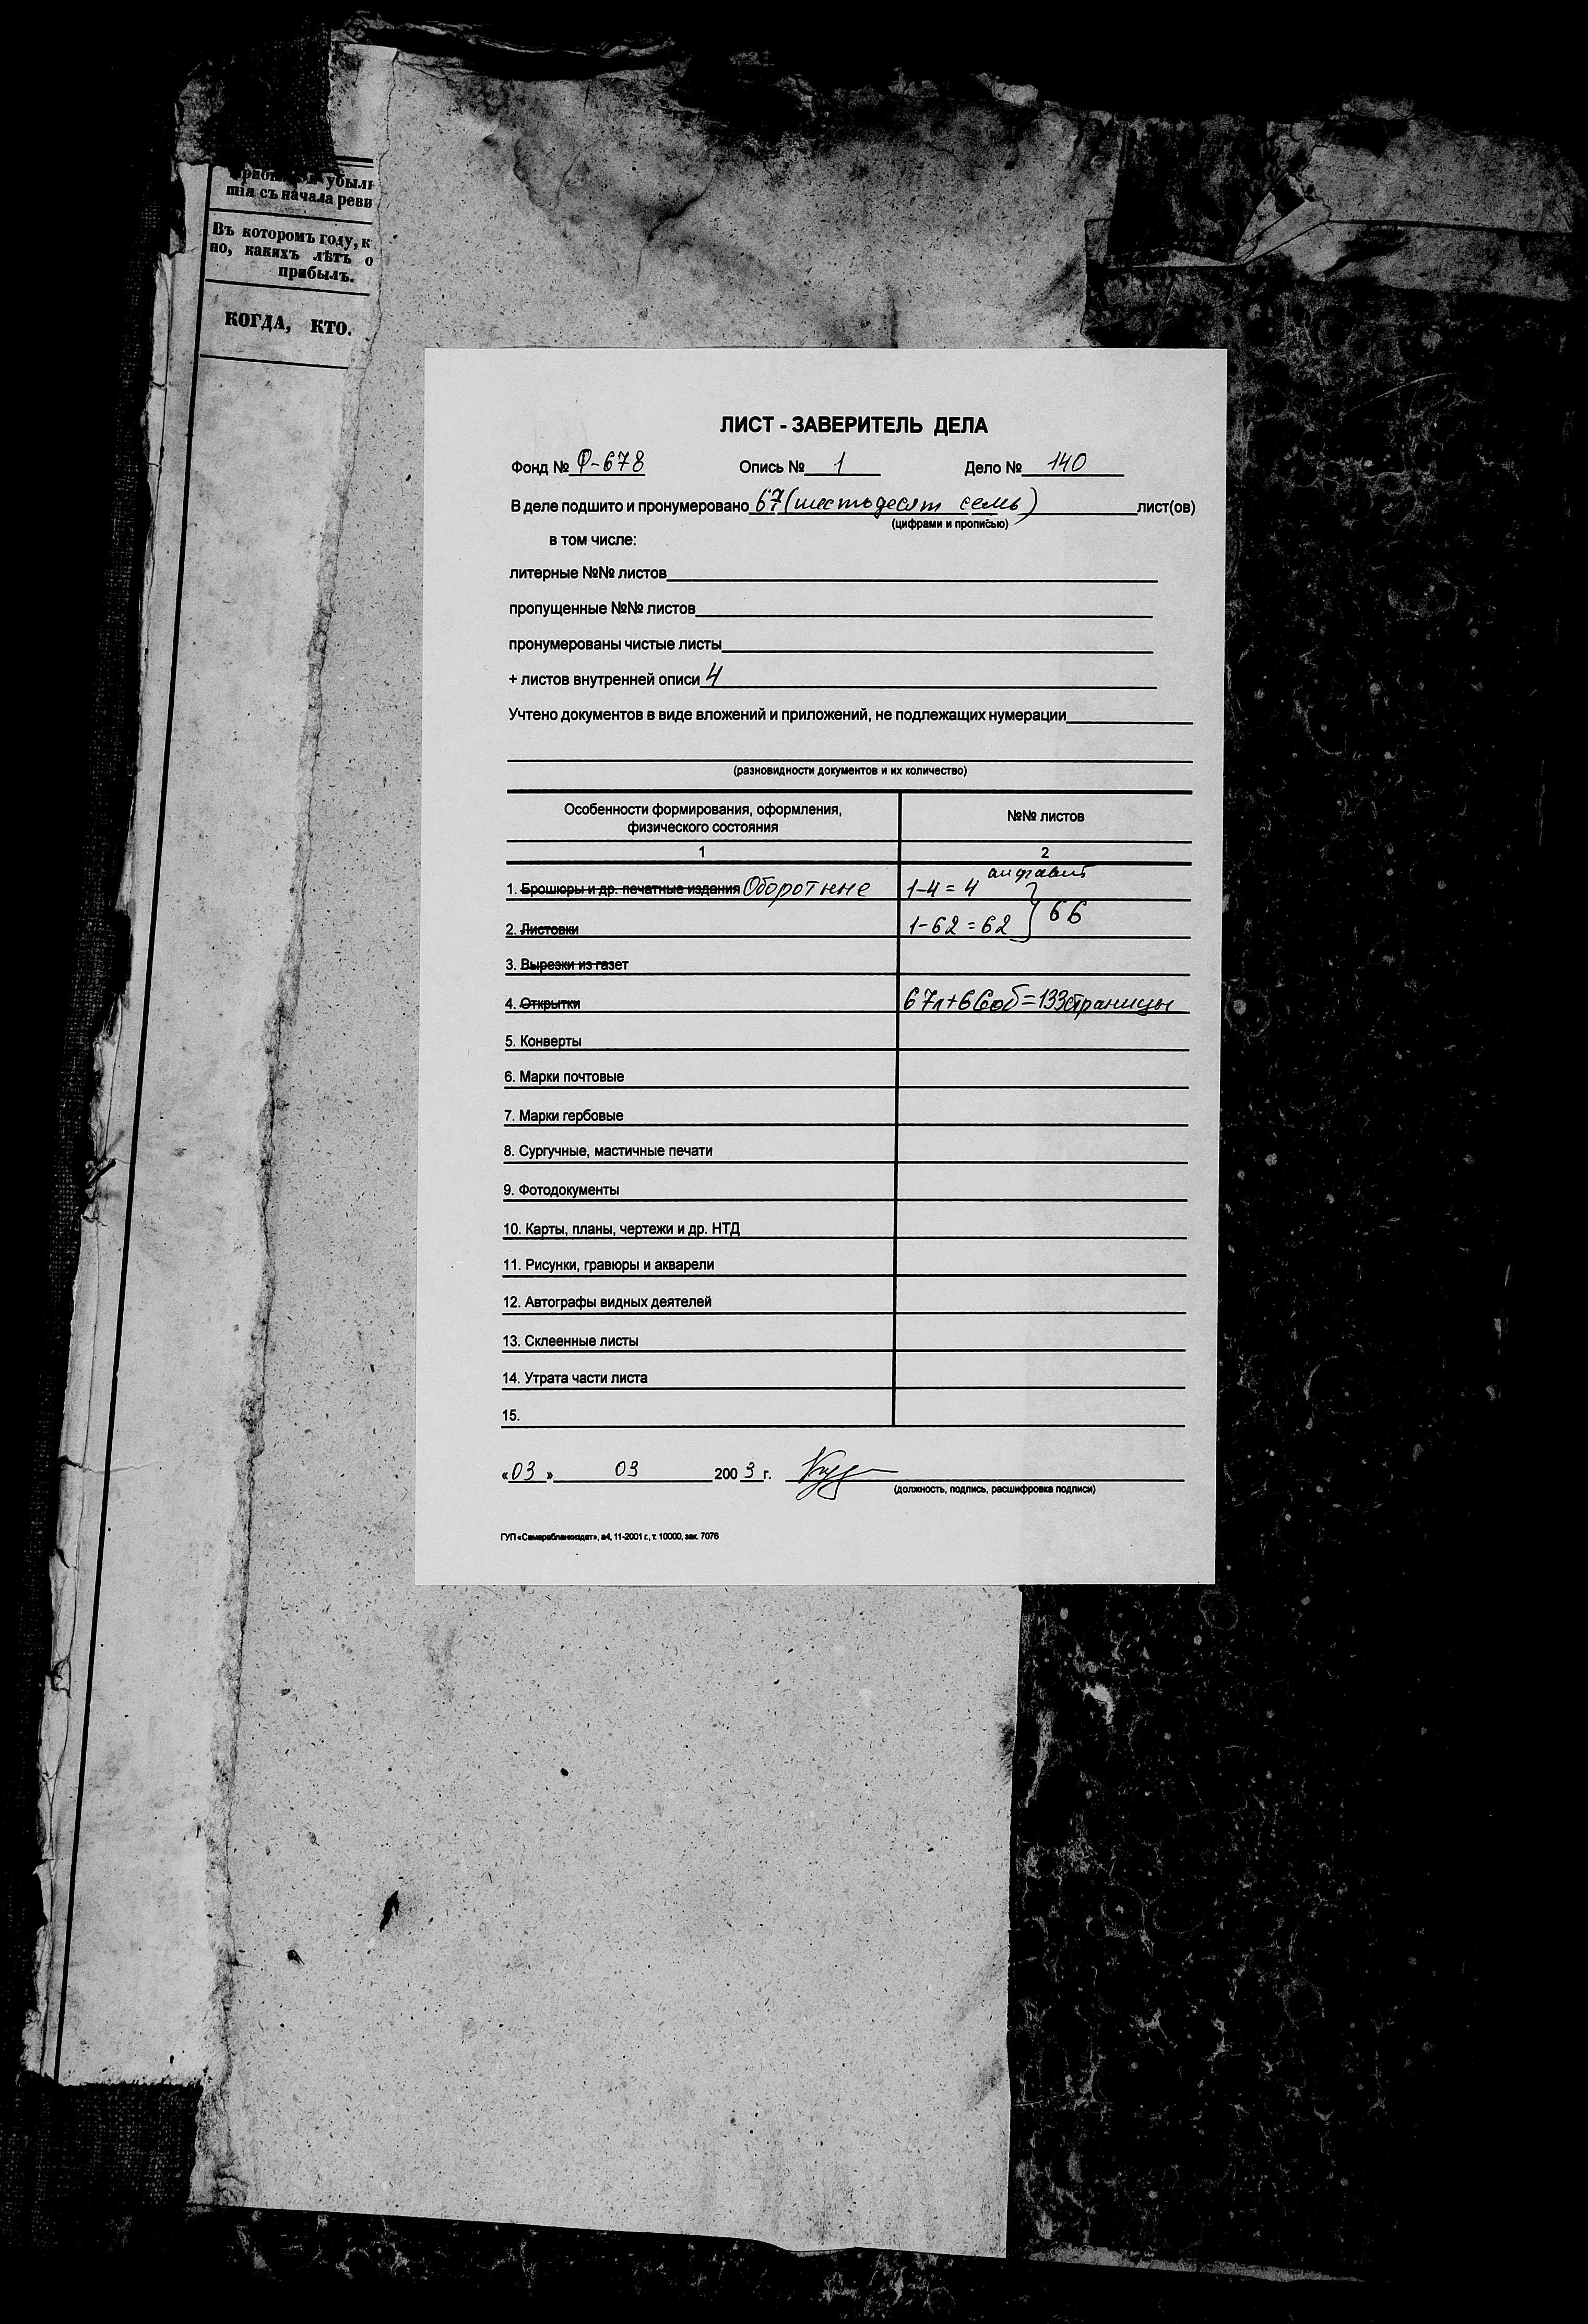 шія съ начала реви
Въ которомъ году, к
но, какихъ лѣтъ о
прибылъ.
КОГДА, КТО.
ЛИСТ - ЗАВЕРИТЕЛЬ ДЕЛА
Фонд № Ф-678 Опись № 1 Дело № 140
В деле подшито и пронумеровано 67 (шестьдесят семь) лист(ов)
(цифрами и прописью)
в том числе:
литерные №№ листов
пропущенные №№ листов
пронумерованы чистые листы
+ листов внутренней описи 4
Учтено документов в виде вложений и приложений, не подлежащих нумерации
(разновидности документов и их количество)
Особенности формирования, оформления,
физического состояния
№№ листов
1 2
алфавит
1. Брошюры и др. печатные издания Оборотные 1-4 = 4
2. Листовки 1-62 = 62 } 66
3. Вырезки из газет
4. Открытки 67л+66об=133страницы
5. Конверты
6. Марки почтовые
7. Марки гербовые
8. Сургучные, мастичные печати
9. Фотодокументы
10. Карты, планы, чертежи и др. НТД
11. Рисунки, гравюры и акварели
12. Автографы видных деятелей
13. Склеенные листы
14. Утрата части листа
15.
«03» 03 2003 г.
(должность, подпись, расшифровка подписи)
ГУП «Самарабланкиздат», а4, 11-2001 г., т. 10000, зак. 7076